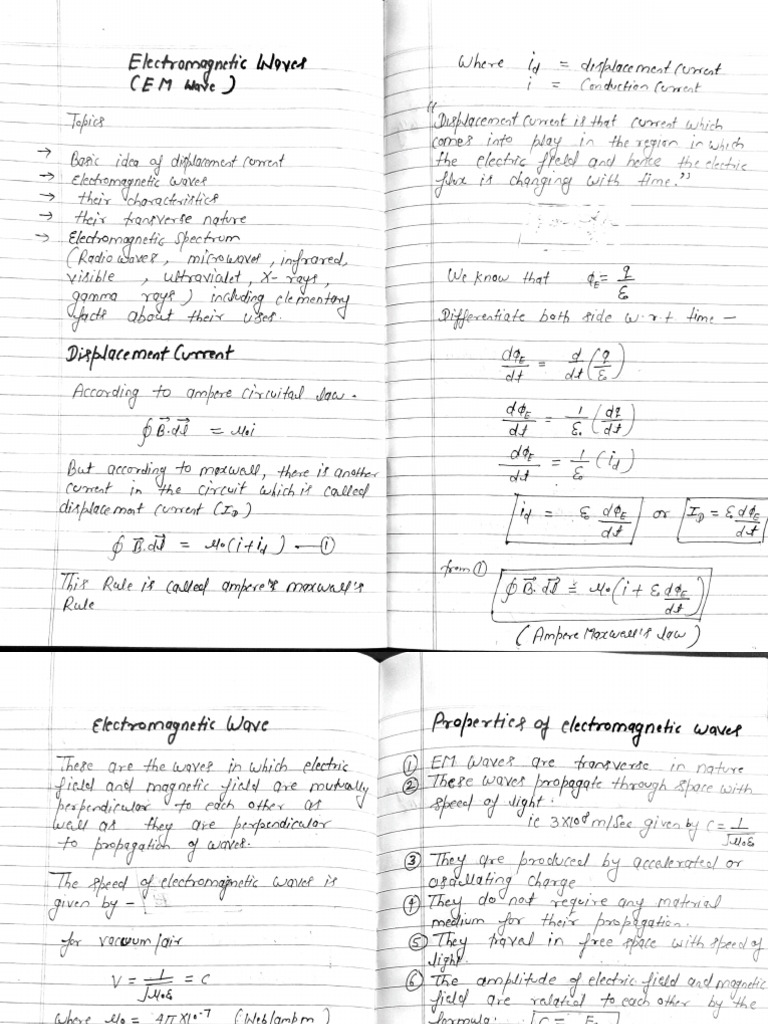 Electromagnetic Waves
(EM Wave)
Topics
→ Basic idea of displacement current
→ Electromagnetic waves
→ their characteristics
→ their transverse nature
→ Electromagnetic Spectrum
(Radio waves, microwaves, infrared,
visible, ultraviolet, X-rays,
gamma rays) including elementary
facts about their uses.
Displacement Current
According to ampere circuital law.
∮B⃗.dl⃗ = μ₀i
But according to maxwall, there is another
current in the circuit which is called
displacement current (I_D)
∮B⃗.dl⃗ = μ₀(i+i_d) —①
This Rule is called ampere's maxwall's
Rule
Where i_d = displacement current
i = Conduction Current
"Displacement Current is that current which
comes into play in the region in which
the electric field and hence the electric
flux is changing with time."
We know that ϕ_E = q/ε₀
Differentiate both side w.r.t time —
dϕ_E/dt = d/dt (q/ε₀)
dϕ_E/dt = 1/ε₀ (dq/dt)
dϕ_E/dt = 1/ε₀ (i_d)
i_d = ε₀ dϕ_E/dt or I_D = ε₀ dϕ_E/dt
from ① ∮B⃗.dl⃗ = μ₀(i + ε₀ dϕ_E/dt)
(Ampere Maxwall's law)
Electromagnetic Wave
These are the waves in which electric
field and magnetic field are mutually
perpendicular to each other as
wall as they are perpendicular
to propagation of waves.
The speed of electromagnetic waves is
given by –
for vacuum/air
V = 1/√μ₀ε₀ = C
Where μ₀ = 4π×10⁻⁷ (Web/ampm)
Properties of electromagnetic waves
① EM Waves are transverse in nature
② These waves propagate through space with
speed of light.
ie 3×10⁸ m/sec given by C = 1/√μ₀ε₀
③ They are produced by accelerated or
oscillating charge
④ They do not require any material
medium for their propagation.
⑤ They travel in free space with speed of
light.
⑥ The amplitude of electric field and magnetic
field are related to each other by the
formula: C = E₀